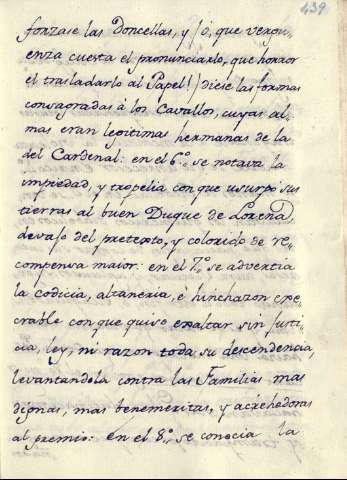 439
forzase las Doncellas, y (ó, que vergu
enza cuesta el pronunciarlo, que horror
el trasladarlo al Papel!) diese las formas
consagradas à los Cavallos, cuyas al
mas eran legitimas hermanas de la
del Cardenal: en el 6.º se notava la
impiedad, y tropelia con que usurpo sus
tierras al buen Duque de Lorena,
devajo del pretexto, y colorido de re
compensa maior: en el 7.º se advertia
la codicia, altaneria, è hinchazon exe
crable con que quiso exaltar sin justi
cia, ley, ni razon toda su descendencia,
levantandola contra las Familias mas
dignas, mas benemeritas, y acrehedoras
al premio: en el 8.º se conocia la